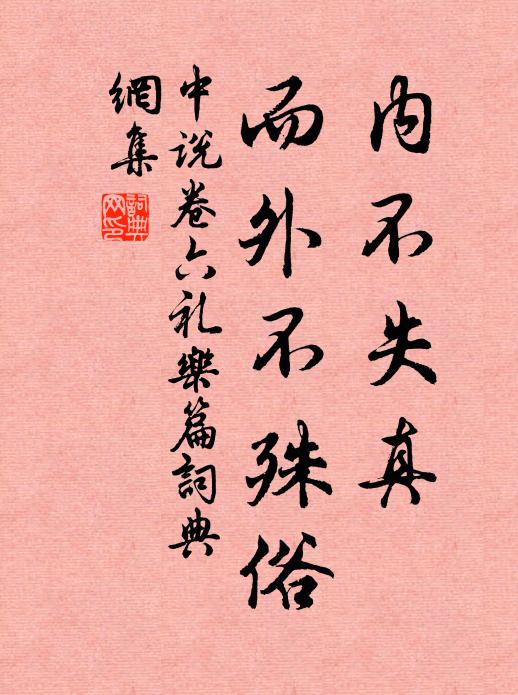 内不失真
而外不殊俗
中说卷六礼樂篇詞典
網集
詞典網印